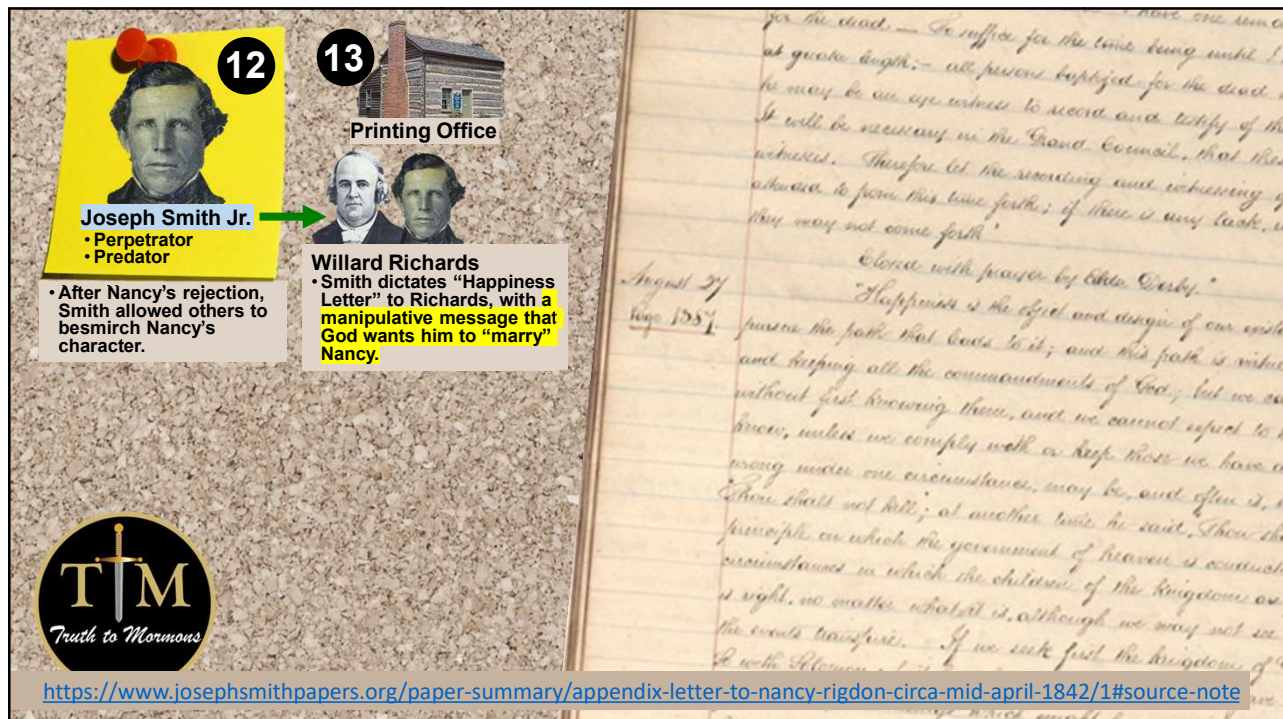 12
Joseph Smith Jr.
• Perpetrator
• Predator
• After Nancy’s rejection,
Smith allowed others to
besmirch Nancy’s
character.
13
Printing Office
Willard Richards
• Smith dictates “Happiness
Letter” to Richards, with a
manipulative message that
God wants him to “marry”
Nancy.
TM
Truth to Mormons
have one rem
for the dead — To suffice for the time being until I
at greate length; — all persons baptized for the dead
he may be an eye witness to record and testify of th
It will be necessary in the Grand Council, that the
witnesses. Therefore let the recording and witnessing
attended to from this time forth; if there is any lack,
they may not come forth"
Closed with prayer by Elder Derby."
August 27
Page 1357.
"Happiness is the object and design of our
pursue the path that leads to it; and this path is virtue
and keeping all the commandments of God; but we ca
without first knowing them, and we cannot expect to
know, unless we comply with or keep those we have a
wrong under one circumstance, may be, and often is,
"Thou shalt not kill"; at another time he said, Thou sha
principle on which the government of heaven is conduct
circumstances in which the children of the kingdom are
is right, no matter what it is, although we may not see
the events transpire. If we seek first the kingdom of
So with Solomon
which might
https://www.josephsmithpapers.org/paper-summary/appendix-letter-to-nancy-rigdon-circa-mid-april-1842/1#source-note